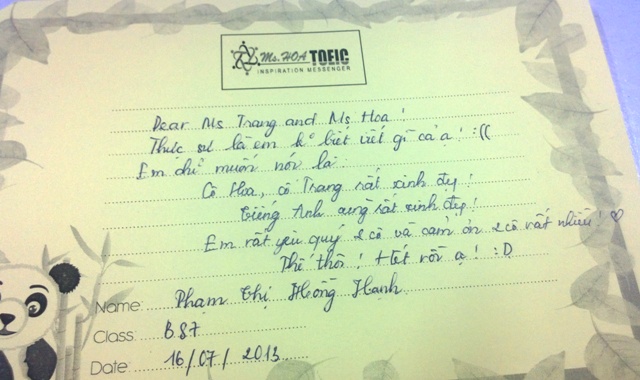 Ms. HOA TOEIC
INSPIRATION MESSENGER
Dear Ms Trang and Ms Hoa !
Thực sự là em k° biết viết gì cả ạ ! :((
Em chỉ muốn nói là
Cô Hoa, cô Trang rất xinh đẹp !
Tiếng Anh cũng rất xinh đẹp !
Em rất yêu quý 2 cô và cảm ơn 2 cô rất nhiều ! ♡
Thế thôi ! Hết rồi ạ ! :D
Name: Phạm Thị Hồng Hanh
Class: B87
Date: 16/07/2013